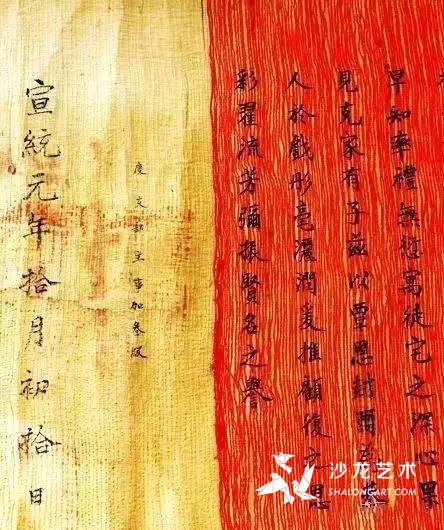 早知率禮無愆寓徒宅之深心果
見克家有子茲以覃恩封爾為
人於戲彤毫灑潤爰推顧復之恩
彩翟流芳彌振賢名之譽
度支部主事加叁級
宣統元年拾月初拾日
沙龙艺术
SHALONGART.COM